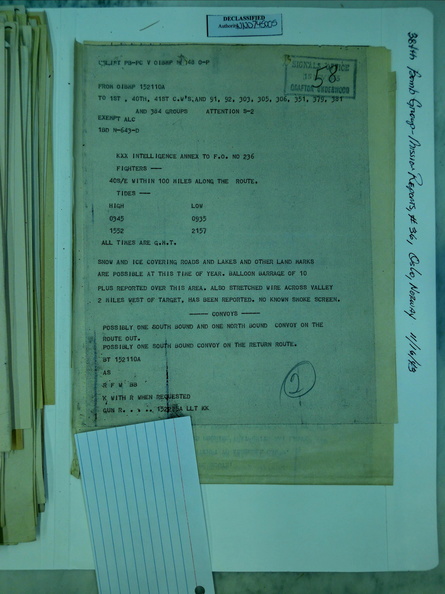 DECLASSIFIED
Authority NND745005
FROM 01BWP 152110A
TO 1ST , 40TH, 41ST C.W'S,AND 91, 92, 303, 305, 306, 351, 379, 381
AND 384 GROUPS ATTENTION S-2
EXEMPT ALC
1BD M-643-D
XXX INTELLIGENCE ANNEX TO F.O. NO 236
FIGHTERS ---
40S/E WITHIN 100 MILES ALONG THE ROUTE.
TIDES ---
HIGH LOW
0345 0935
1552 2157
ALL TIMES ARE G.M.T.
SNOW AND ICE COVERING ROADS AND LAKES AND OTHER LAND MARKS
ARE POSSIBLE AT THIS TIME OF YEAR. BALLOON BARRAGE OF 10
PLUS REPORTED OVER THIS AREA. ALSO STRETCHED WIRE ACROSS VALLEY
2 MILES WEST OF TARGET, HAS BEEN REPORTED. NO KNOWN SMOKE SCREEN.
----- CONVOYS -----
POSSIBLY ONE SOUTH BOUND AND ONE NORTH BOUND CONVOY ON THE
ROUTE OUT.
POSSIBLY ONE SOUTH BOUND CONVOY ON THE RETURN ROUTE.
BT 152110A
AS
R F W BB
K WITH R WHEN REQUESTED
2
58
384th Bomb Group-Mission Reports, #36, Oslo, Norway 11/16/43